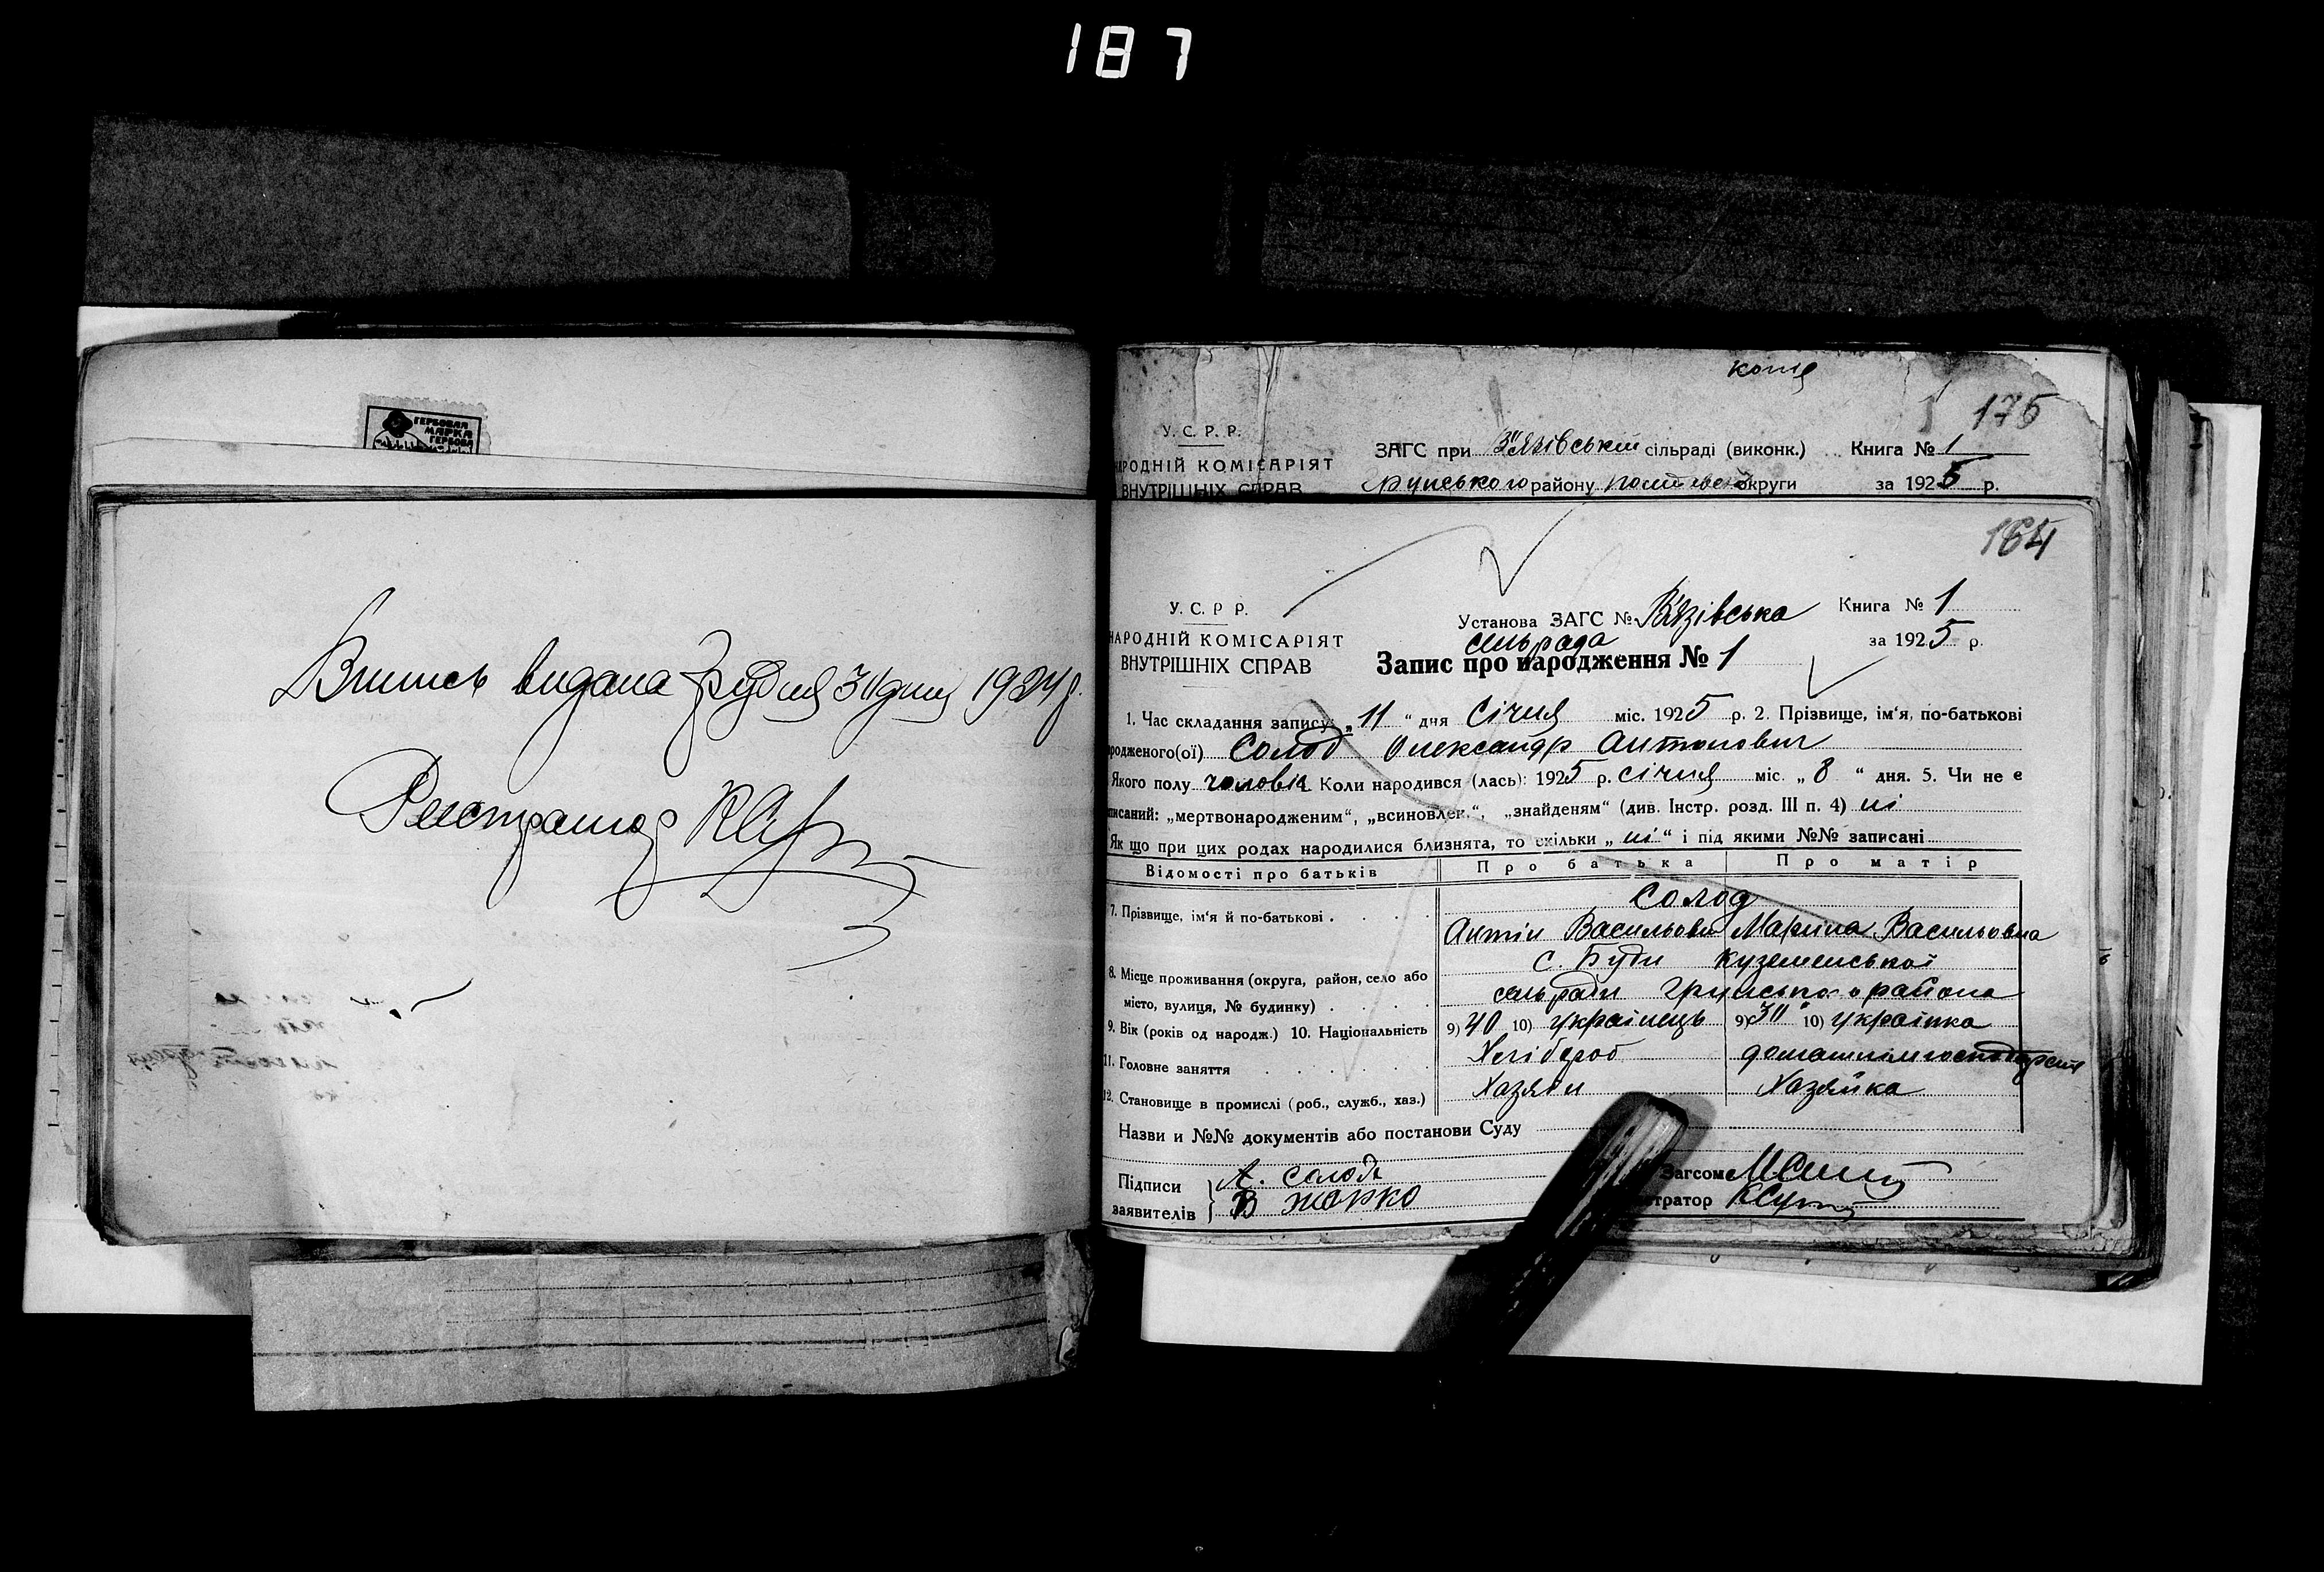 187
ГЕРБОВАЯ
МАРКА
ГЕРБОВА
Випись видана Грудня 31 дня 1924 р.
Реєстратор
копія
175
У. С. Р. Р.
ЗАГС при В'язівській сільраді (виконк.) Книга № 1
РОДНІЙ КОМІСАРІЯТ
ВНУТРІШНІХ СПРАВ
Грунського району Полтавської округи за 1925 р.
164
У. С. Р Р.
НАРОДНІЙ КОМІСАРІЯТ
ВНУТРІШНІХ СПРАВ
Установа ЗАГС № В'язівська Книга № 1
сільрада за 1925 р.
Запис про народження № 1
1. Час складання запису: „11“ дня Січня міс. 1925 р. 2. Прізвище, ім'я, по-батькові
родженого(ої) Солод Олександр Антонович
Якого полу чоловіч. Коли народився (лась): 1925 р. січня міс. „8“ дня. 5. Чи не є
писаний: „мертвонародженим“, „всиновлен.“, „знайденям“ (див. Інстр. розд. III п. 4) ні
Як що при цих родах народилися близнята, то скільки „ні“ і під якими №№ записані
Відомості про батьків Про батька Про матір
7. Прізвище, ім'я й по-батькові Солод
Антін Васильович Марина Васильовна
8. Місце проживання (округа, район, село або с. Буди Куземенської
місто, вулиця, № будинку) сельради Грунського района
9. Вік (років од народж.) 10. Національність 9) 40 10) українець 9) 30 10) українка
11. Головне заняття Хлібороб домашнім господарств
12. Становище в промислі (роб., служб., хаз.) Хазяїн Хазяйка
Назви и №№ документів або постанови Суду
Підписи А. солодь Загсом
заявителів В жорко тратор